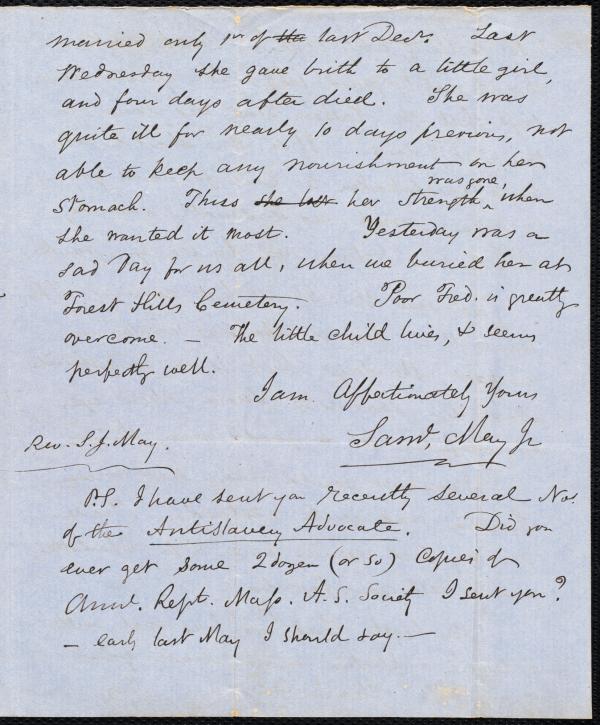 married only 1st of ~~the~~ last Decr. Last
Wednesday she gave birth to a little girl,
and four days after died. She was
quite ill for nearly 10 days previous, not
able to keep any nourishment on her
stomach. Thus ~~she lost~~ her strength was gone, when
she wanted it most. Yesterday was a
sad day for us all, when we buried her at
Forest Hills Cemetery. Poor Fred. is greatly
overcome. — The little child lives, & seems
perfectly well.
I am Affectionately Yours
Saml. May Jr
Rev. S. J. May.
P.S. I have sent you recently several Nos.
of the Antislavery Advocate. Did you
ever get some 2 dozen (or so) Copies of
Annl. Rept. Mass. A. S. Society I sent you?
— early last May I should say. —